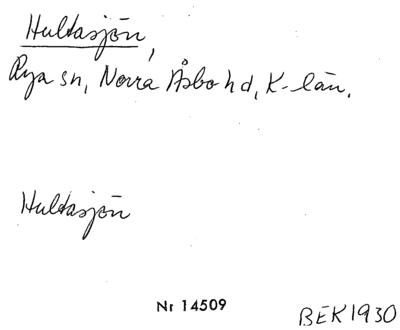 Hultasjön,
Rya sn, Norra Åsbo hd, K-län.
Hultasjön
Nr 14509
BEK 1930